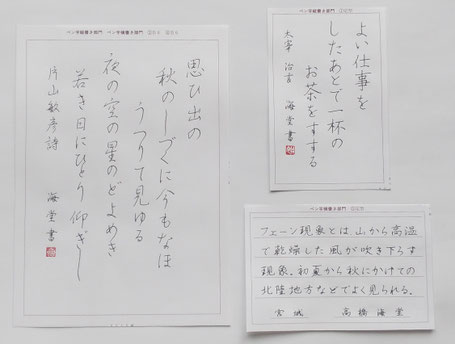 思ひ出の
秋のしづくに今もなほ
うつりて見ゆる
夜の空の星のどよめき
若き日にひとり仰ぎし
片山敏彦詩 海堂書
よい仕事を
したあとで一杯の
お茶をすする
太宰治言 海堂書
フェーン現象とは、山から高温
で乾燥した風が吹き下らす
現象。初夏から秋にかけての
北陸地方などでよく見られる。
宮城 高橋海堂